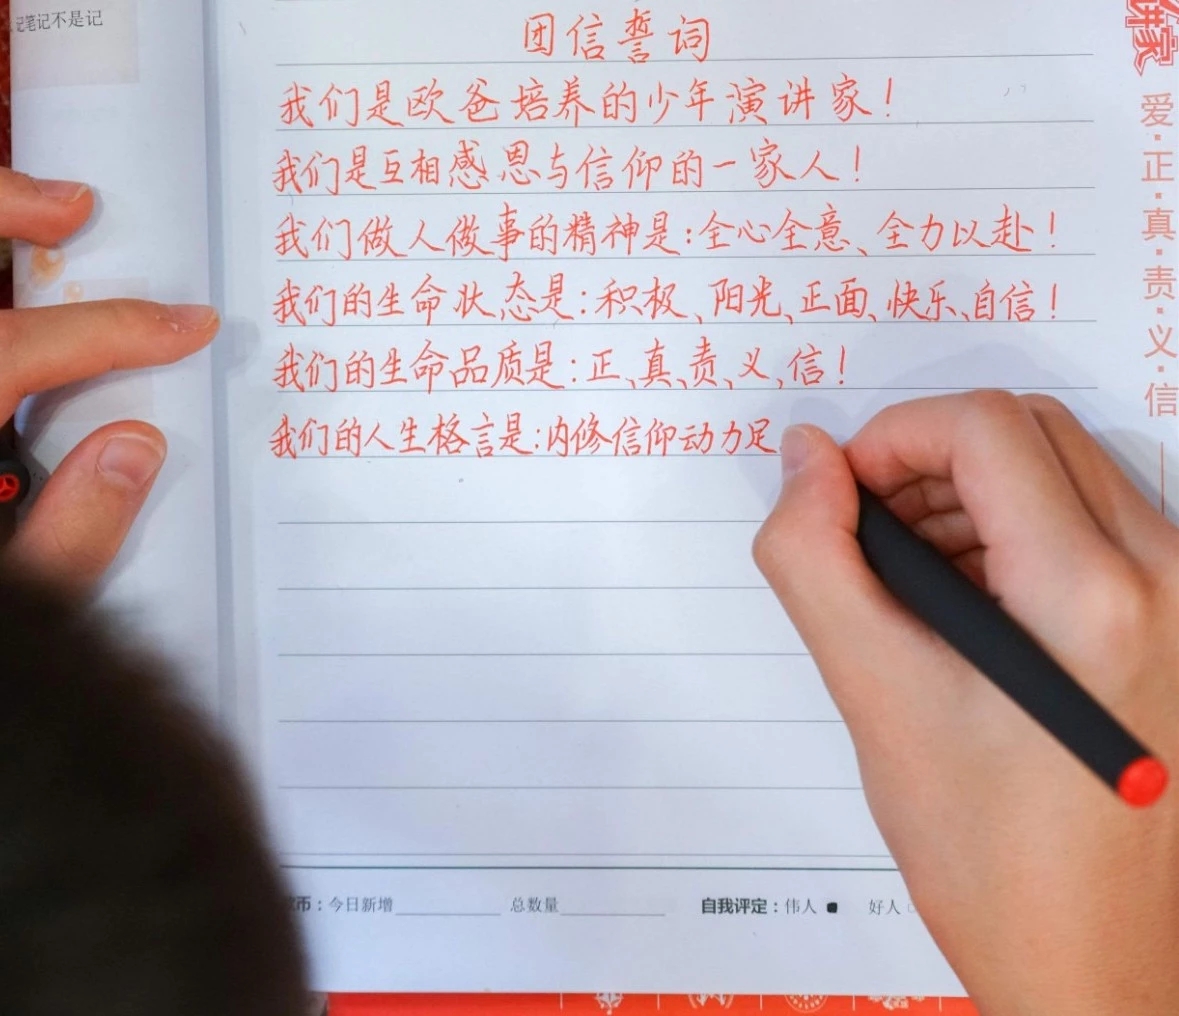 记笔记不是记
团信誓词
我们是欧爸培养的少年演讲家！
我们是互相感恩与信仰的一家人！
我们做人做事的精神是：全心全意、全力以赴！
我们的生命状态是：积极、阳光、正面、快乐、自信！
我们的生命品质是：正、真、责、义、信！
我们的人生格言是：内修信仰动力足
讲家
爱·正·真·责·义·信
币：今日新增 总数量 自我评定：伟人 好人